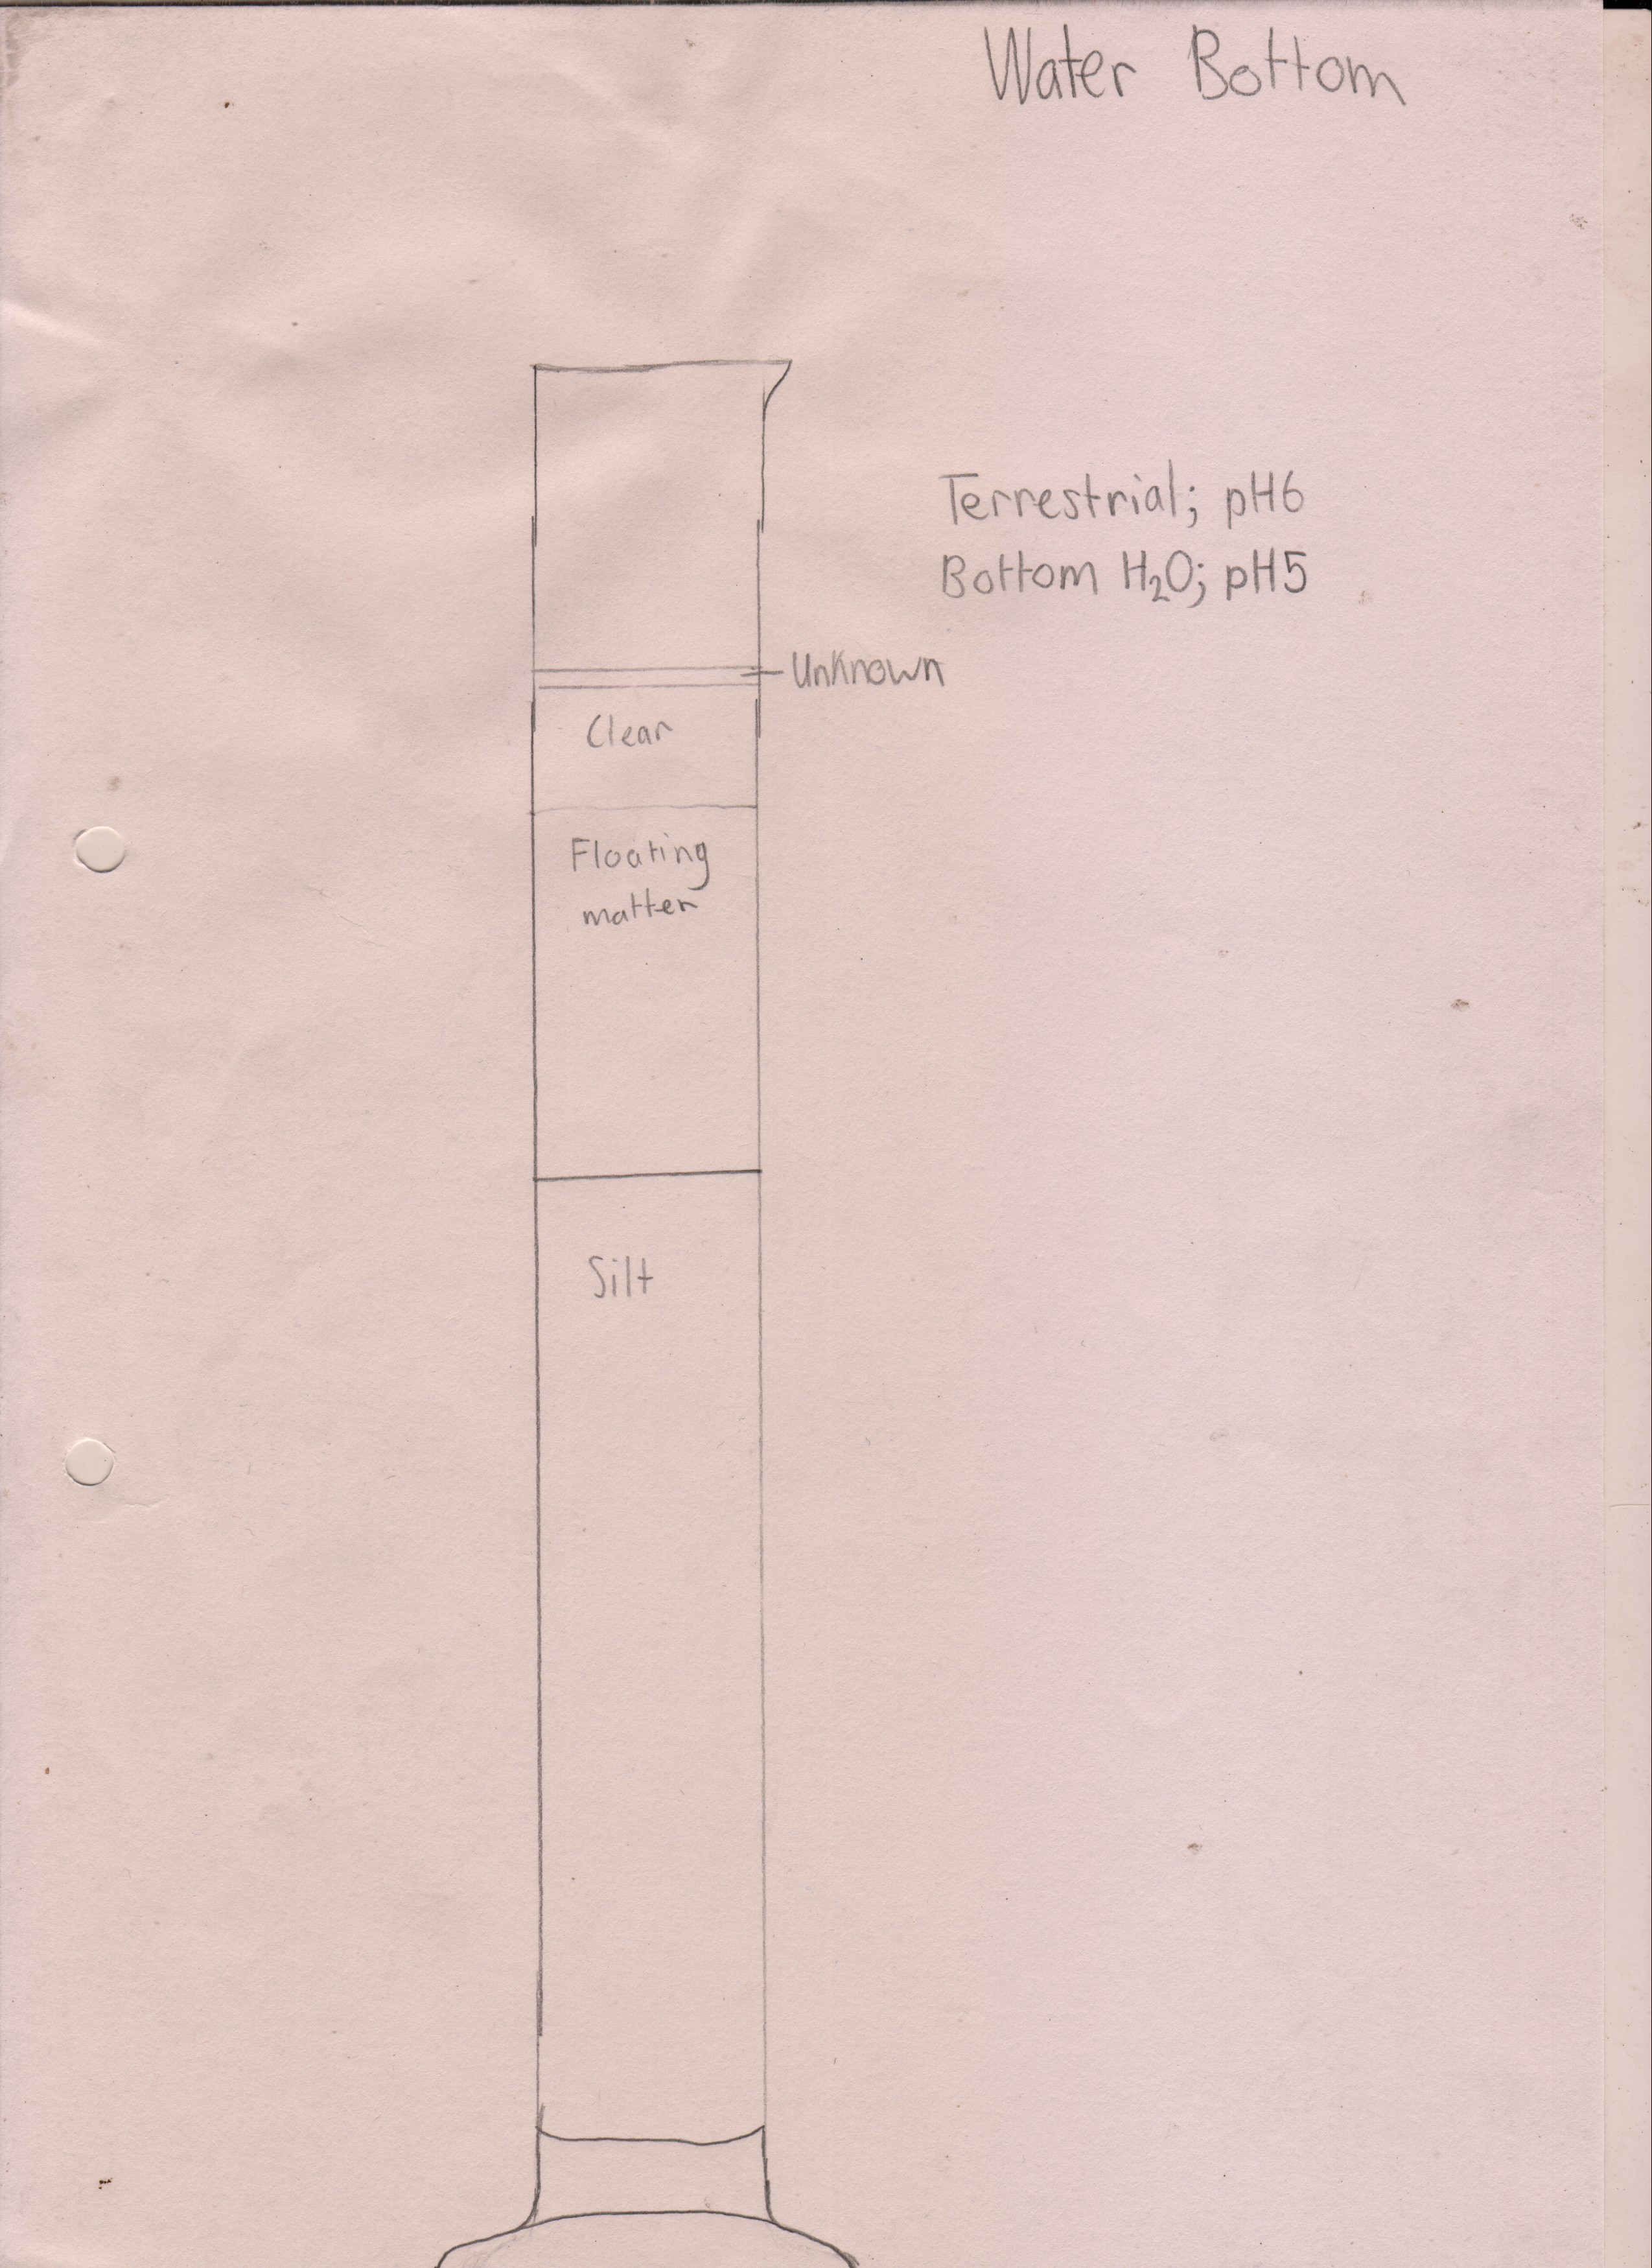 Water Bottom
Terrestrial; pH6
Bottom H₂O; pH5
Unknown
Clear
Floating
matter
Silt